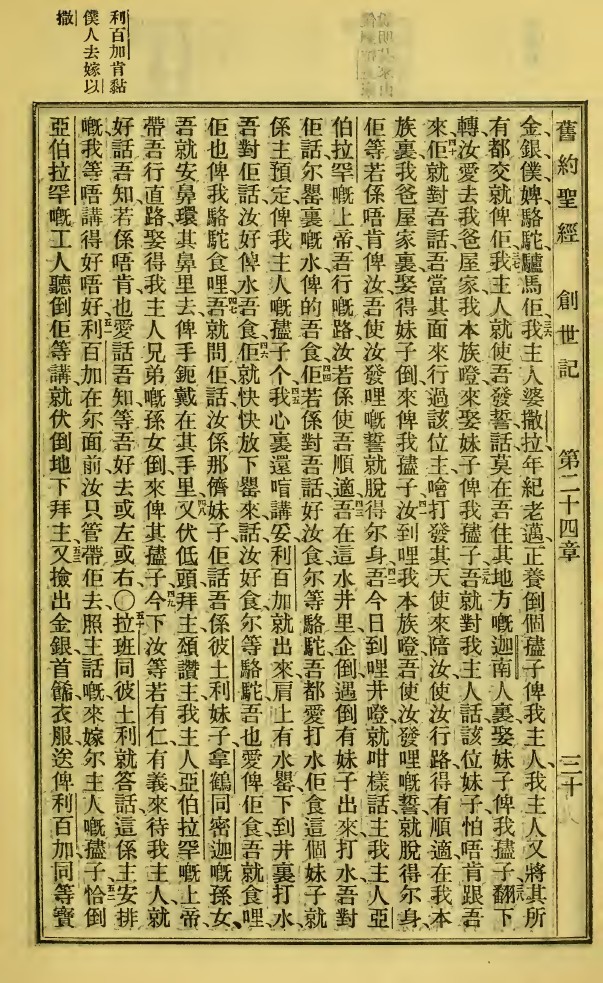 舊約聖經　創世記　第二十四章　三十
金銀僕婢駱駝驢馬佢三六我主人婆撒拉年紀老邁正養倒個𡥧子俾我主人我主人又將其所
有都交就俾佢三七我主人就使吾發誓話莫在吾住其地方嘅迦南人裏娶妹子俾我𡥧子三八翻下
轉汝愛去我爸屋家我本族噔來娶妹子俾我𡥧子三九吾就對我主人話該位妹子怕唔肯跟吾
來四十佢就對吾話吾當其面來行過該位主噲打發其天使來陪汝使汝行路得有順適在我本
族裏我爸屋家裏娶得妹子倒來俾我𡥧子四一汝到哩我本族噔吾使汝發哩嘅誓就脫得尔身
佢等若係唔肯俾汝吾使汝發哩嘅誓就脫得尔身四二吾今日到哩井噔就咁樣話主我主人亞
伯拉罕嘅上帝吾行嘅路汝若係使吾順適四三吾在這水井里企倒遇倒有妹子出來打水吾對
佢話尔罌裏嘅水俾的吾食四四佢若係對吾話好汝食尔等駱駝吾都愛打水佢食這個妹子就
係主預定俾我主人嘅𡥧子個四五我心裏還喑講妥利百加就出來肩上有水罌下到井裏打水
吾對佢話汝好俾水吾食四六佢就快快放下罌來話汝好食尔等駱駝吾也愛俾佢食吾就食哩
佢也俾我駱駝食哩四七吾就問佢話汝係那儕妹子佢話吾係彼土利妹子拿鶴同密迦嘅孫女
吾就安鼻環其鼻里去俾手鈪戴在其手里四八又伏低頭拜主頌讚主我主人亞伯拉罕嘅上帝
帶吾行直路娶得我主人兄弟嘅孫女倒來俾其𡥧子四九今下汝等若有仁有義來待我主人就
好話吾知若係唔肯也愛話吾知等吾好去或左或右〇五十拉班同彼土利就答話這係主安排
嘅我等唔講得好唔好五一利百加在尔面前汝只管帶佢去照主話嘅來嫁尔主人嘅𡥧子五二恰倒
亞伯拉罕嘅工人聽倒佢等講就伏倒地下拜主五三又撿出金銀首飾衣服送俾利百加同等寶
利百加肯黏
僕人去嫁以
撒